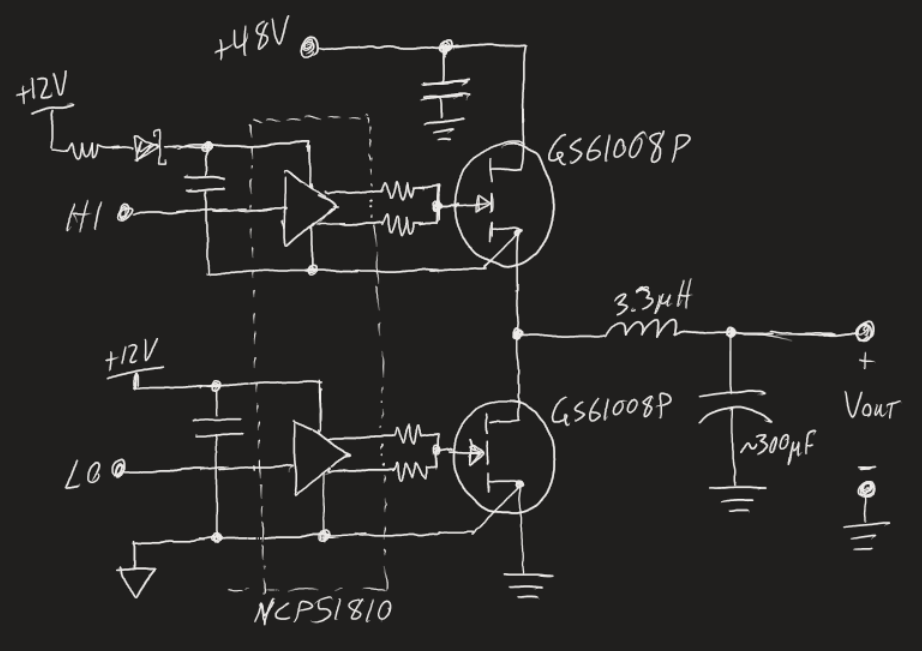 +48V
+12V
GS61008P
HI
3.3μH
+12V
GS61008P
+
VOUT
~300μF
LO
-
NCP51810